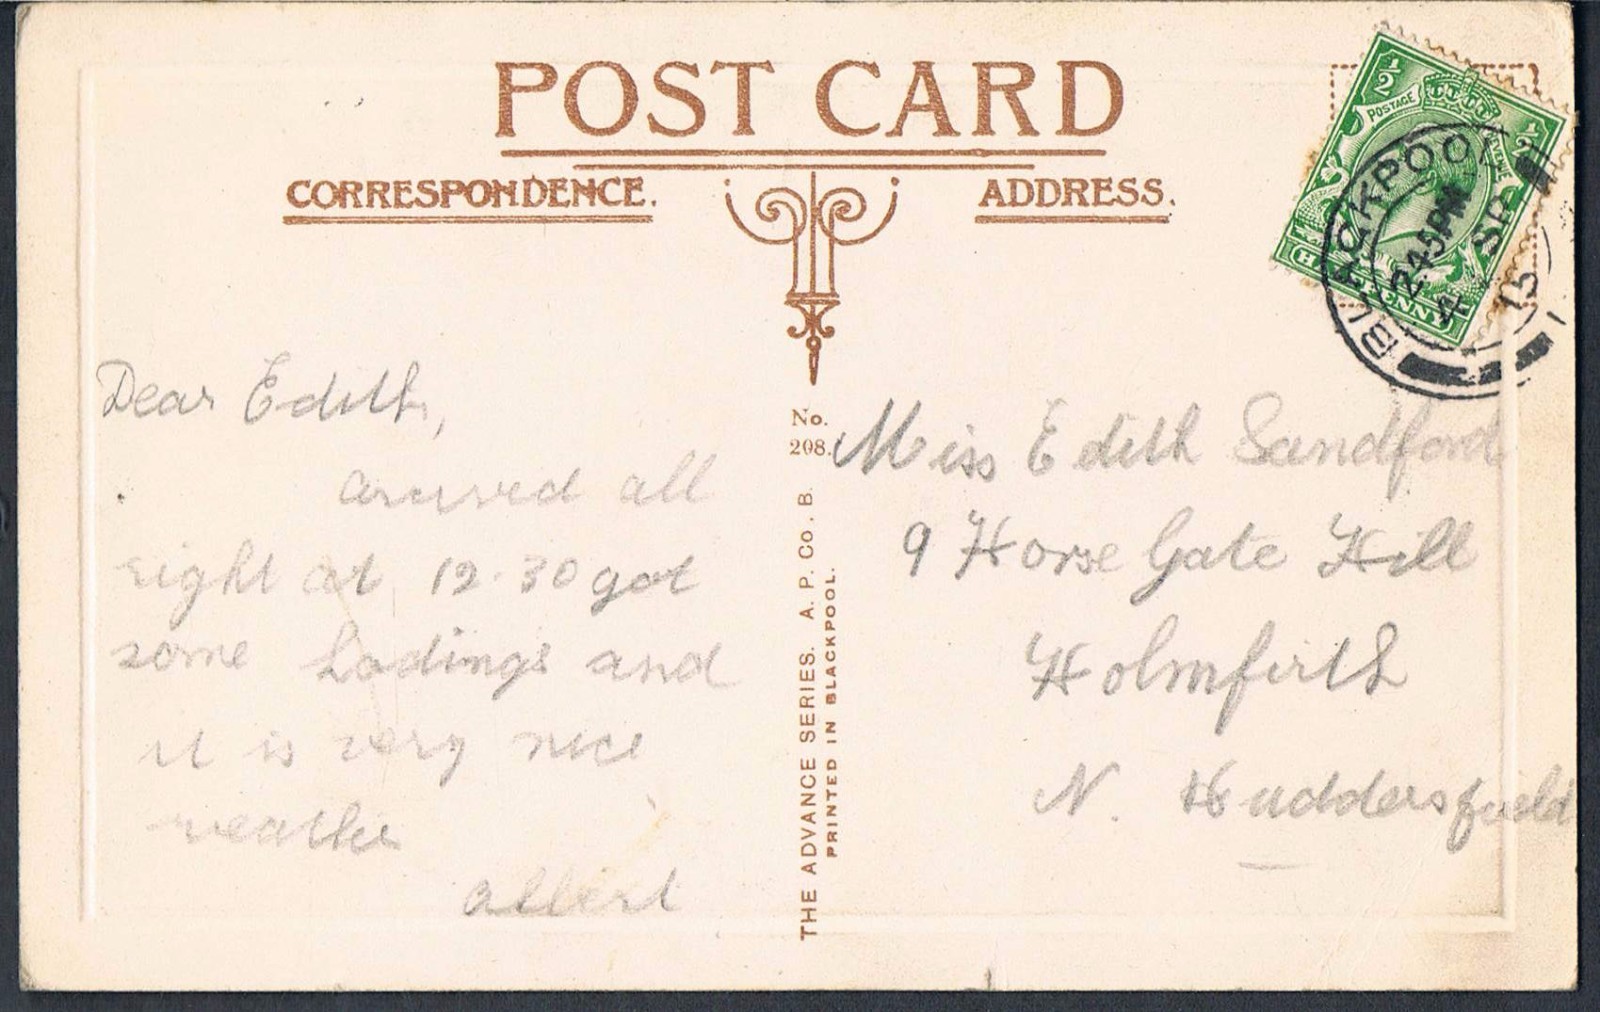 POST CARD
CORRESPONDENCE.
ADDRESS.
½
POSTAGE
½
BLACKPOOL
2 45 PM
4 SP
13
PENNY
Dear Edith,
arrived all
right at 12.30 got
some Ladings and
it is very nice
weather
Albert
No.
208.
THE ADVANCE SERIES. A. P. Co. B.
PRINTED IN BLACKPOOL.
Miss Edith Sandford
9 Horse Gate Hill
Holmfirth
N. Huddersfield